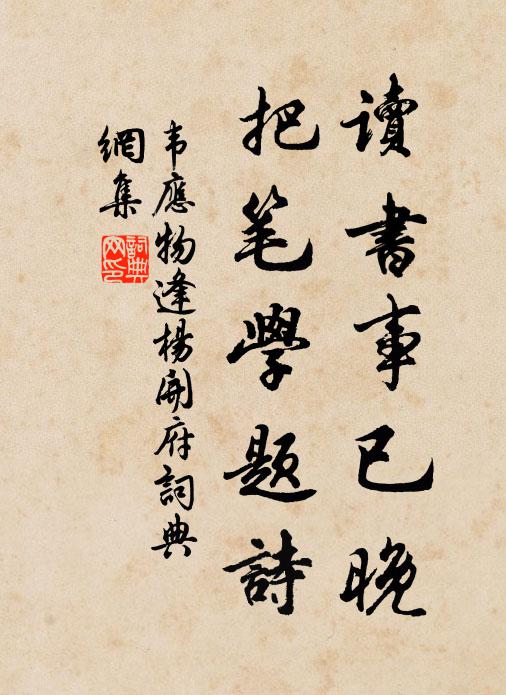 讀書事已晚
把笔學題詩
韦應物逢楊開府詞典
網集
詞典
网印